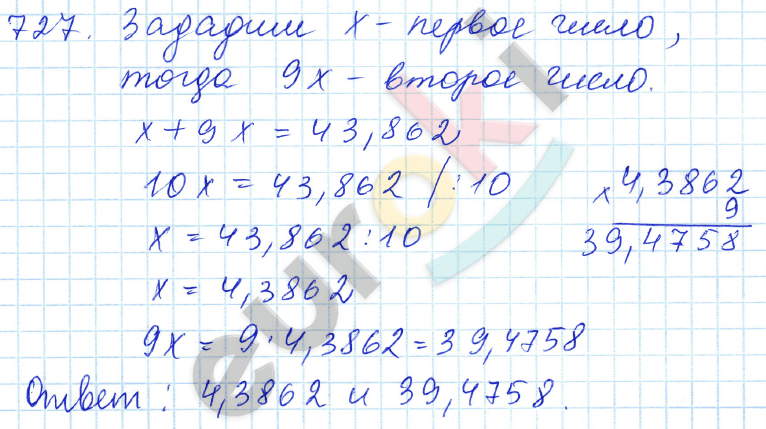 727. Зададим x - первое число,
тогда 9x - второе число.
x + 9x = 43,862
10x = 43,862 /:10
x = 43,862:10
x = 4,3862
9x = 9·4,3862 = 39,4758
Ответ: 4,3862 и 39,4758.
× 4,3862
9
39,4758
euroki